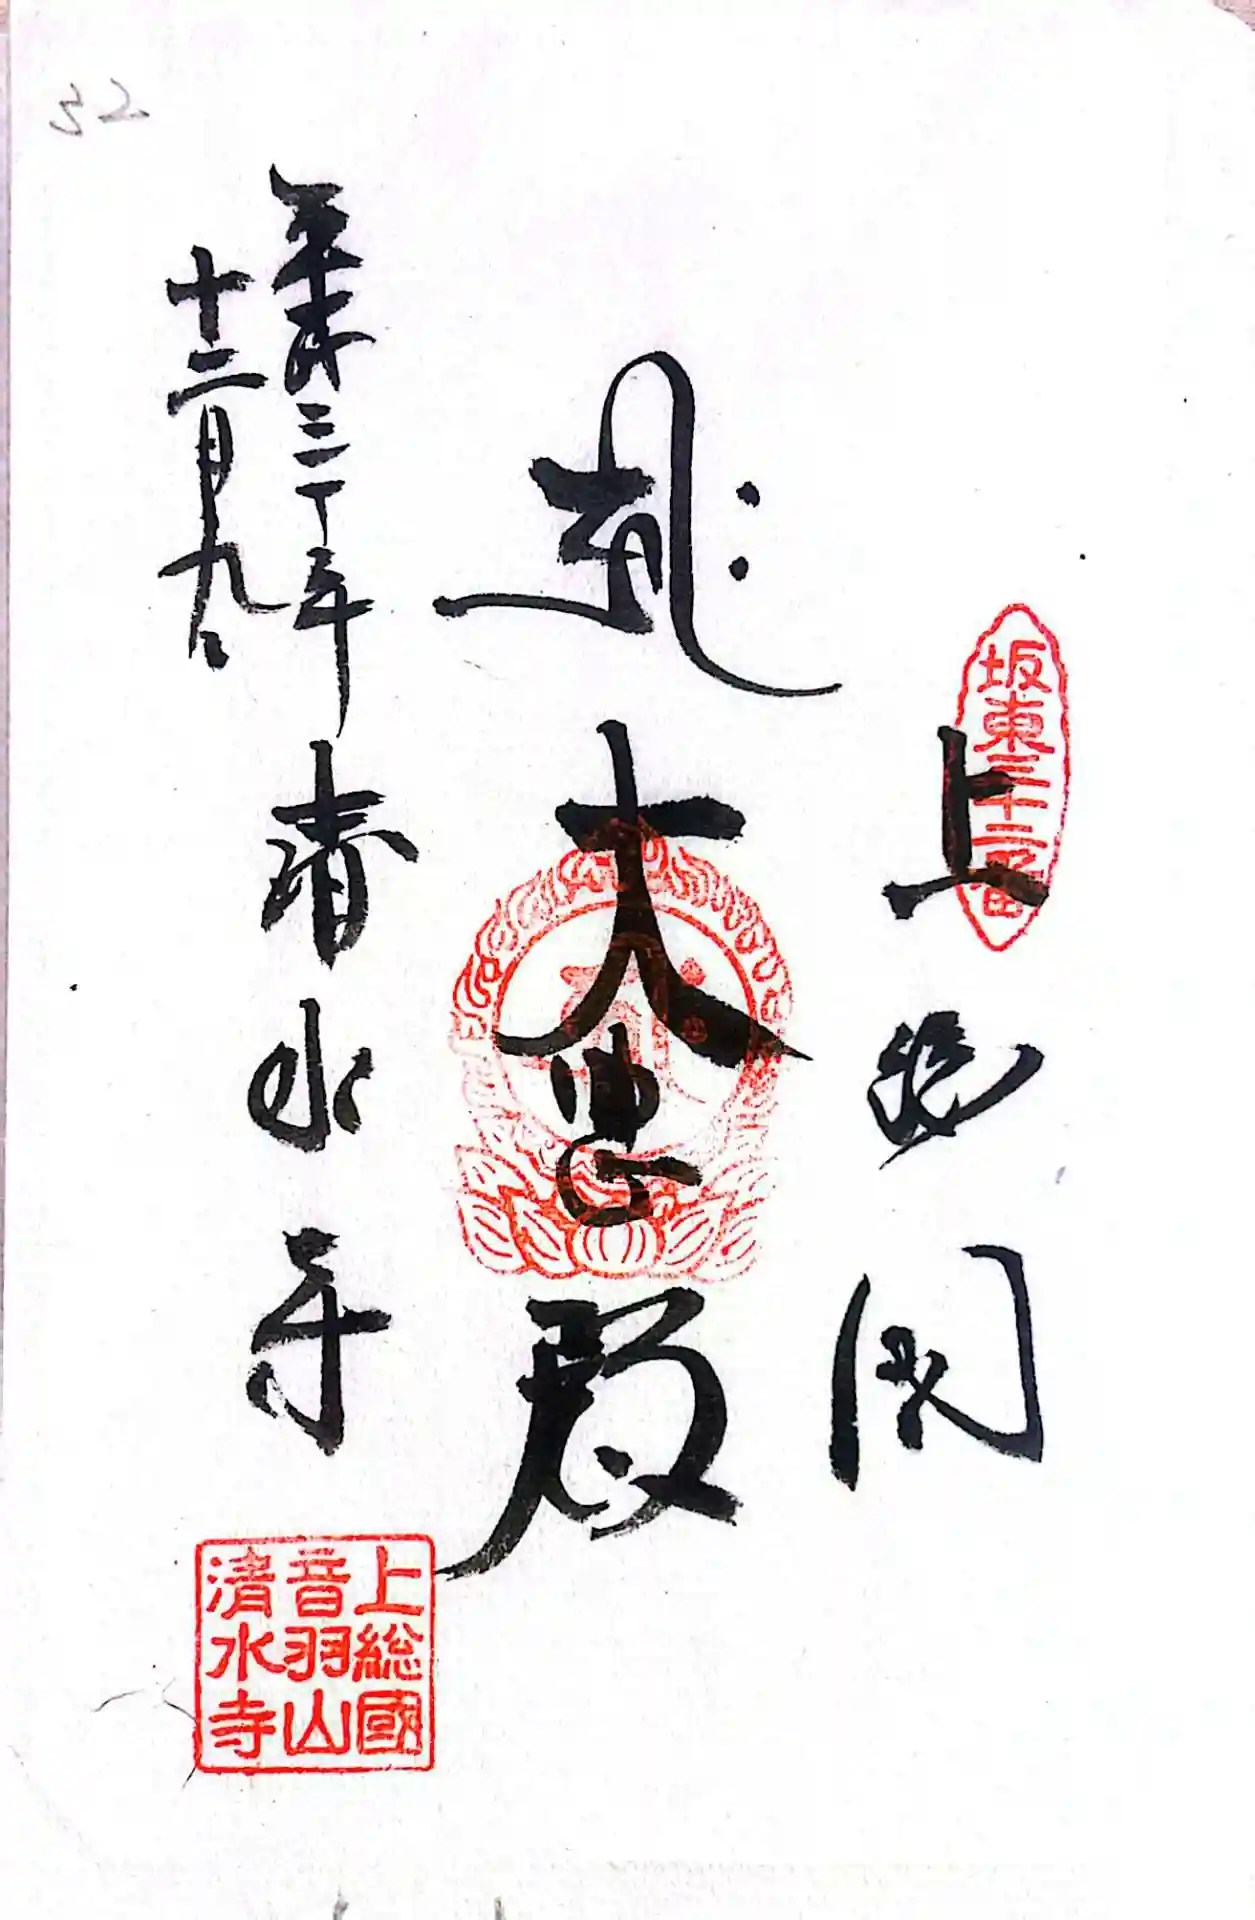 32
坂東三十二番
上総国
大悲殿
平成三十年
十二月九日
清水寺
上総國
音羽山
清水寺